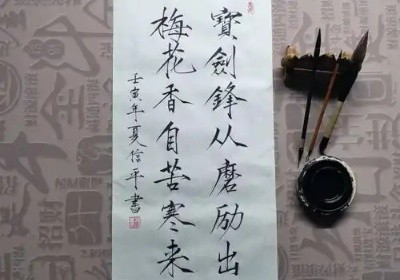 寶劍鋒从磨励出
梅花香自苦寒来
壬寅年夏信平書